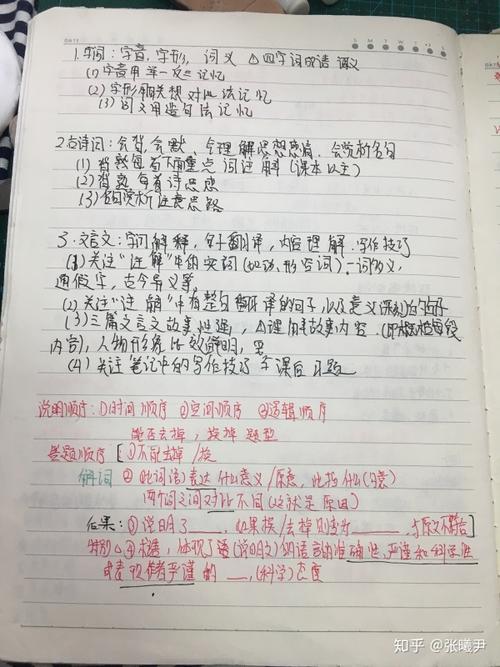 1.字词：字音，字形，词义 △四字词成语 词义
(1)字音用举一反三记忆
(2)字形用联想对比法记忆
(3)词义用造句法记忆
2.古诗词：会背，会默，会理解思想感情，会赏析名句
(1)背熟每首下面重点词注解(课本以主)
(2)背熟每首诗思想
(3)名句赏析注意思路
3.文言文：字词解释，句子翻译，内容理解，写作技巧
(1)关注“注解”中的实词(如动、形容词)一词多义，
通假字，古今异义等。
(2)关注“注解”中有整句翻译的句子，以及意义深刻的句子
(3)三篇文言文故事性强，△理解故事内容(即概括每段
内容)，人物形象比较鲜明，
(4)关注笔记中的写作技巧和课后习题
说明顺序：①时间顺序 ②空间顺序 ③逻辑顺序
能否去掉，换掉题型
答题顺序 ①不能去掉/换
解词 ②此词语表达什么意义/原意，此指什么(义)
两个词之间对比不同(这就是原因)
后果：③说明了____，如果换/去掉则变为____，与原文不符合
特别△④ 体现了语(说明文)的语言的准确性、严谨和科学性
或表现作者严谨的__、(科学)态度
知乎 @张曦尹